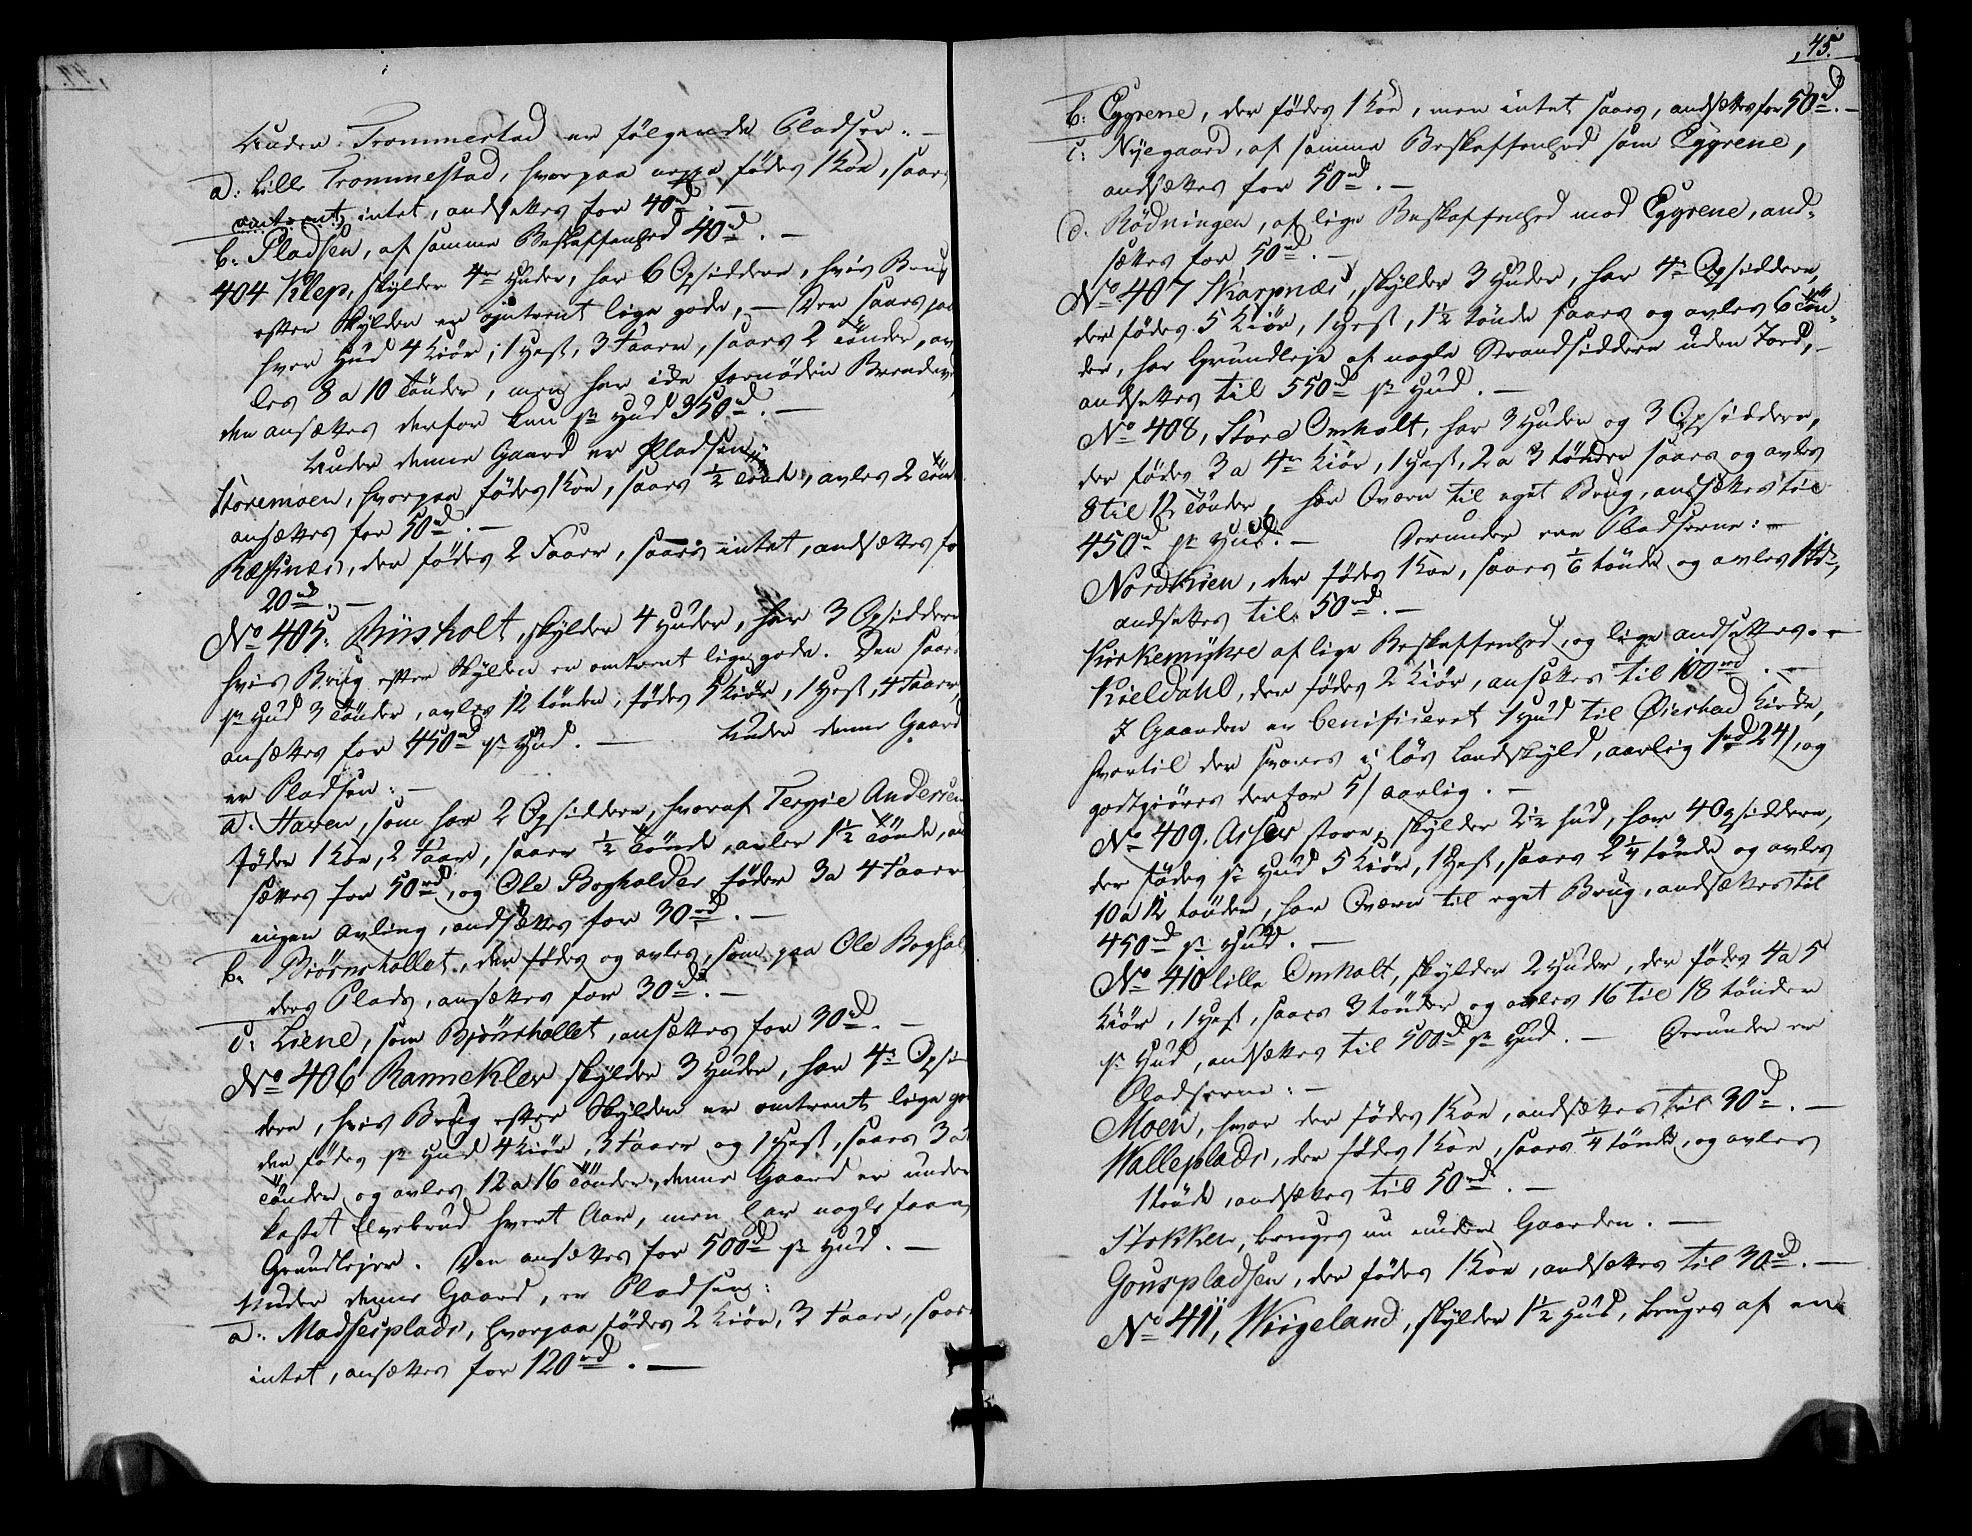 Under Trommestad er følgende Pladser. —
a: Lille Trommestad, hvorpaa neppe fødes 1 Koe, saaes
omtrent intet, andsettes for 40rd. —
b: Pladsen, af samme Beskaffenhed 40rd. —
404 Klep, skylder 4re Huder, har 6 Opsiddere, hvis Brug
efter Skylden er omtrent lige gode, — Der saaes paa
hver Hud 4 Kiør, 1 Hest, 3 Faare, saaes 2 Tønder, av
les 8 a 10 Tønder, men har icke fornøden Brendeve
den ansættes derfor kun pr Hud 350rd. —
Under denne Gaard er Pladsen
Storemoen, hvorpaa fødes 1 Koe, saaes ½ Tønde, avles 2 Tønd
ansættes for 50rd. —
Ræssinæs, der fødes 2 Faare, saaes intet, andsættes fo
20rd. —
No 405. Biisholt, skylder 4 Huder, har 3 Opsiddere
hvis Brug efter Skylden er omtrent lige gode. Den saaes
pr Hud 3 Tønder, avles 12 tønder, fødes 5 Kiør, 1 Hest, 4 Faare,
ansættes for 450rd pr Hud. — Under denne Gaard
er Pladsen: —
a. Haven, som har 2 Opsiddere, hvoraf Tergie Andersen
føder 1 Koe, 2 Faar, saaer ½ Tønde, avler 1½ Tønde, an
sættes for 50rd, og Ole Bogholder føder 3 a 4 Faare
ingen Avling, andsættes for 30rd. —
b. Biørnshollet, der fødes og avles, som paa OleBoghol
ders Plads, ansættes for 30rd. —
c: Liene, som Bjørnshollet, ansættes for 30rd. —
No 406 Rannekler skylder 3 Huder, har 4re Opsi
dere, hvis Brug efter Skylden er omtrent lige go
der fødes pr Hud 4 Kiør, 3 Faare og 1 Hest, saaes 3 a
Tønder og avles 12 a 16 Tønder, denne Gaard er under
kastet Elvebrud hvert Aar, men har nogle faae
Grundlejer. Den ansættes for 500rd pr Hud. —
Under denne Gaard, er Pladsen:
a: Madsesplads, hvorpaa fødes 2 Kiør, 3 Faare, saaes
intet, ansættes for 120rd. —
45.
b: Eggrene, der fødes 1 Koe, men intet saaes, andsættes for 50rd. —
c: Nyegaard, af samme Beskaffenhed som Eggrene,
andsættes for 50rd. —
d. Rødningen, af lige Beskaffenhed med Eggrene, and-
sættes for 50rd. —
No 407 Skarpnæs, skylder 3 Huder, har 4re Opsiddere,
der fødes 5 Kiør, 1 Hest, 1½ tønde saaes og avles 6 Tøn-
der, har Grundleje af nogle Strandsiddere uden Jord, —
andsettes til 550rd pr Hud. —
No 408, Store Omholt, har 3 Huder og 3 Opsiddere,
der fødes 3 a 4re Kiør, 1 Hest, 2 a 3 tønder saaes og avles
8 til 12 Tønder, har Qværn til eget Brug, andsættes til
450rd pr Hud. — Derunder ere Pladserne: —
Nordkien, der fødes 1 Koe, saaes 1/6 tønde og avles 1 Tde,
andsættes til 50rd. —
Kirkemyhre af lige Beskaffenhed og lige andsættes. —
Kieldahl, der fødes 2 Kiør, ansættes til 100rd. —
I Gaarden er benificeret 1 Hud til Øiestad Kirke,
hvortil der svares i løs Landskyld, aarlig 1rd 24/, og
godtgiøres derfor 5/ aarlig. —
No 409. Asser store, skylder 2½ hud, har 4 Opsiddere,
der fødes pr Hud 5 Kiør, 1 Hest, saaes 2¼ tønde og avles
10 a 12 tønder, har Qværn til eget Brug, andsættes til
450rd pr Hud. —
No 410 lille Omholt, skylder 2 Huder, der fødes 4 a 5
Kiør, 1 Hest, saaes 3 tønder og avles 16 til 18 tønder
pr Hud, andsættes til 500rd pr Hud. — Derunder er
Pladserne: —
Moen, hvor der fødes 1 Koe, andsættes til 30rd. —
Walleplads, der fødes 1 Koe, saaes ¼ tønde, og avles
1 tønde, andsættes til 50rd. —
Stokken, bruges nu under Gaarden. —
Gonspladsen, der fødes 1 Koe, andsættes til 30rd. —
No 411, Wiigeland, skylder 1½ Hud, bruges af en